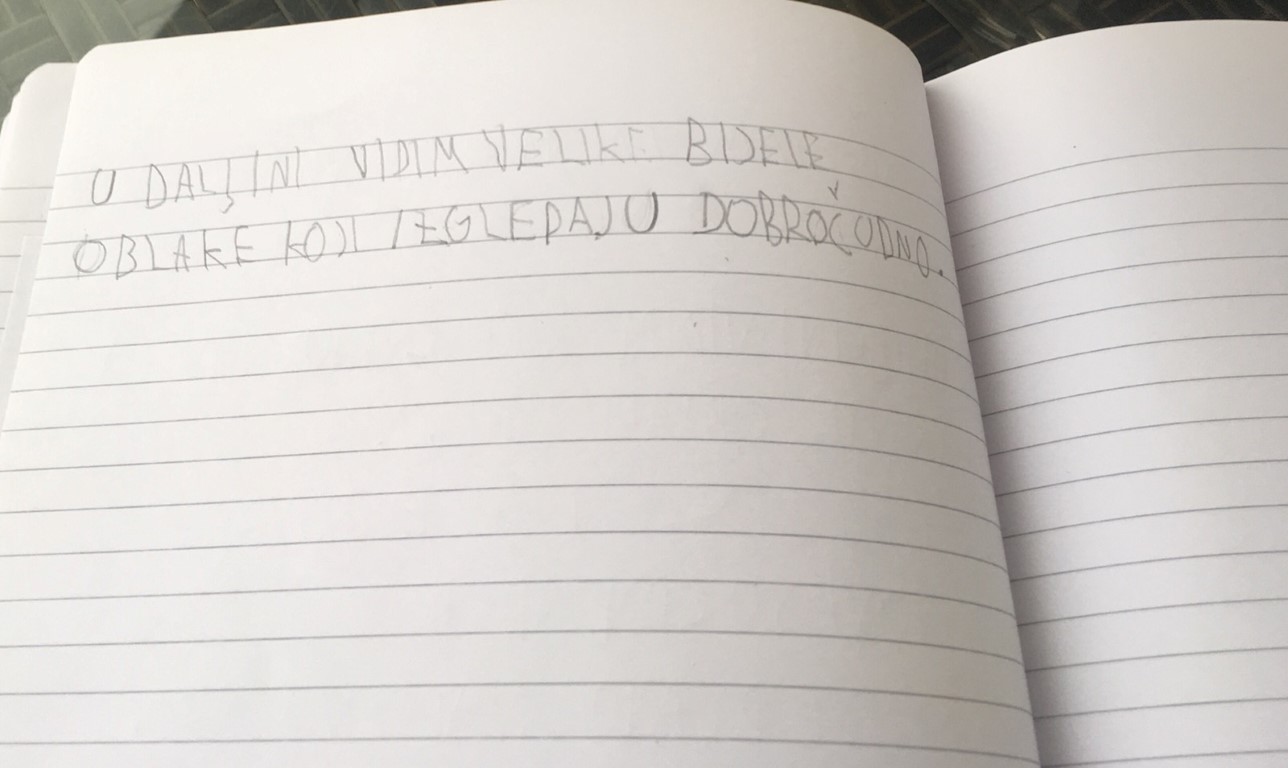 U DALJINI VIDIM VELIKE BIJELE
OBLAKE KOJI IZGLEDAJU DOBROČUDNO.